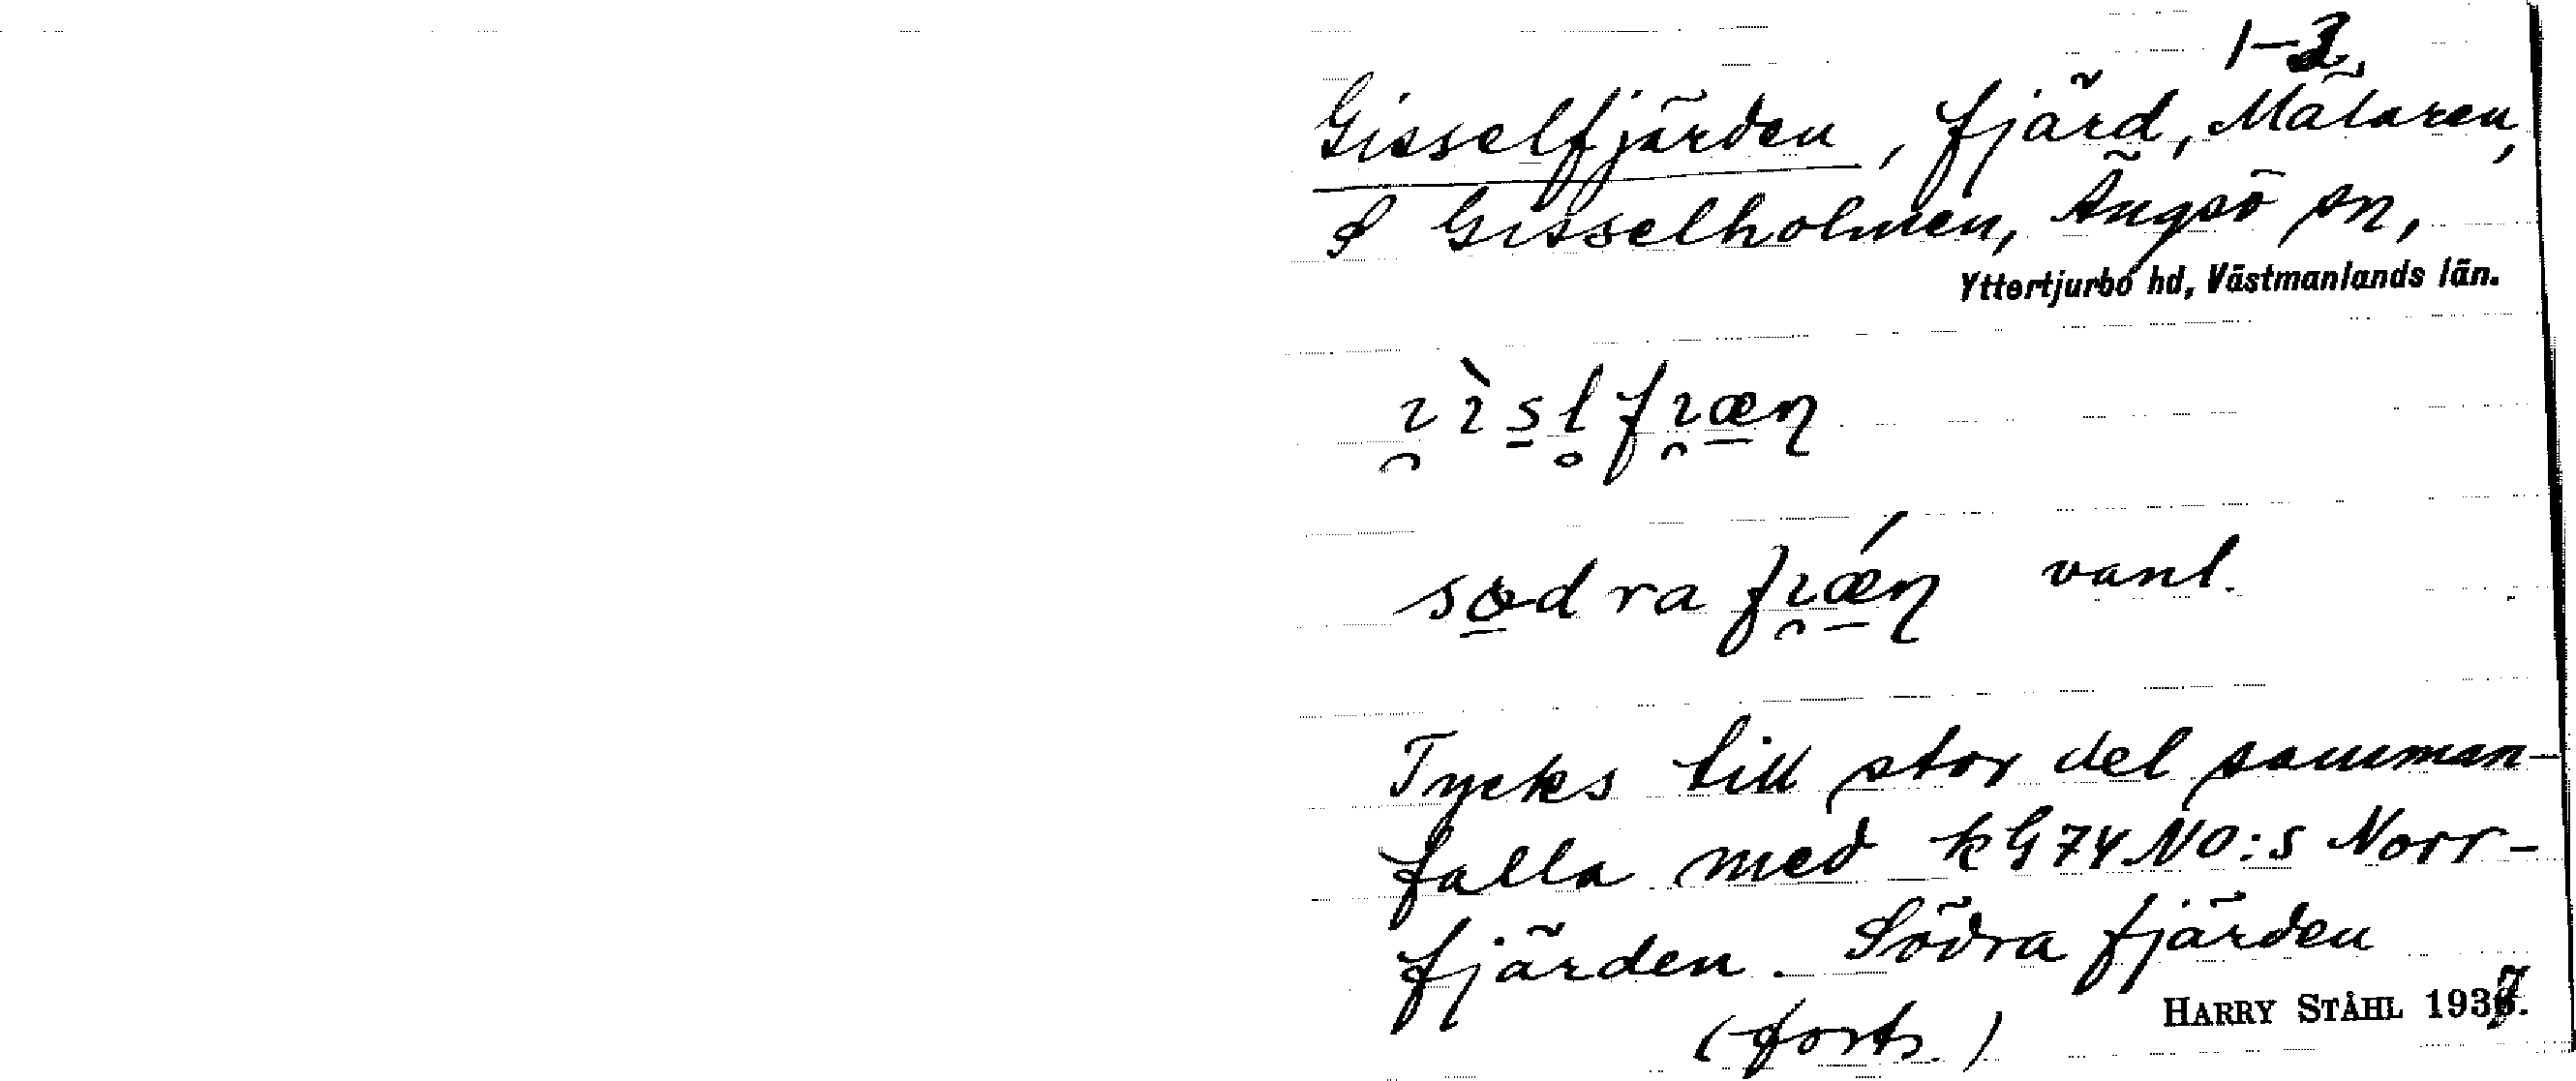 1-3
Gisselfjärden, fjärd, Mälaren,
S Gisselholmen, Ängsö sn,
Yttertjurbo hd, Västmanlands län.
södra fıǽn vanl.
Tycks till stor del samman-
falla med kG74NO:s Norr-
fjärden. Södra fjärden
(forts.)
HARRY STÅHL 1937.